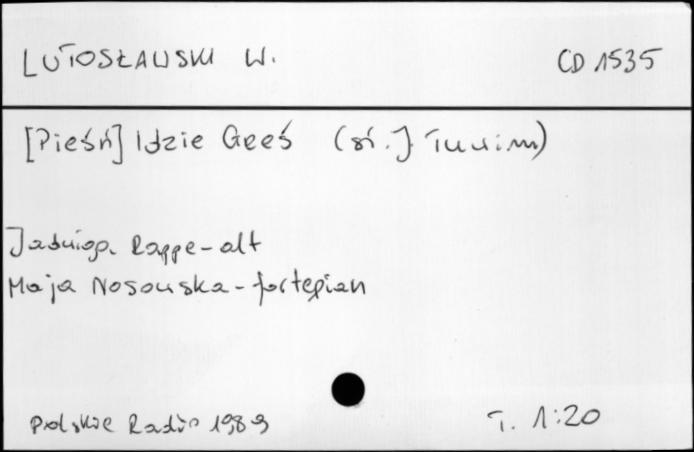 LUTOSŁAWSKI W. CD 1535
[Pieśń] Idzie Grześ (sł. J Tuwim)
Jadwiga Rappe - alt
Maja Nosowska - fortepian
Polskie Radio 1989 T. 1:20